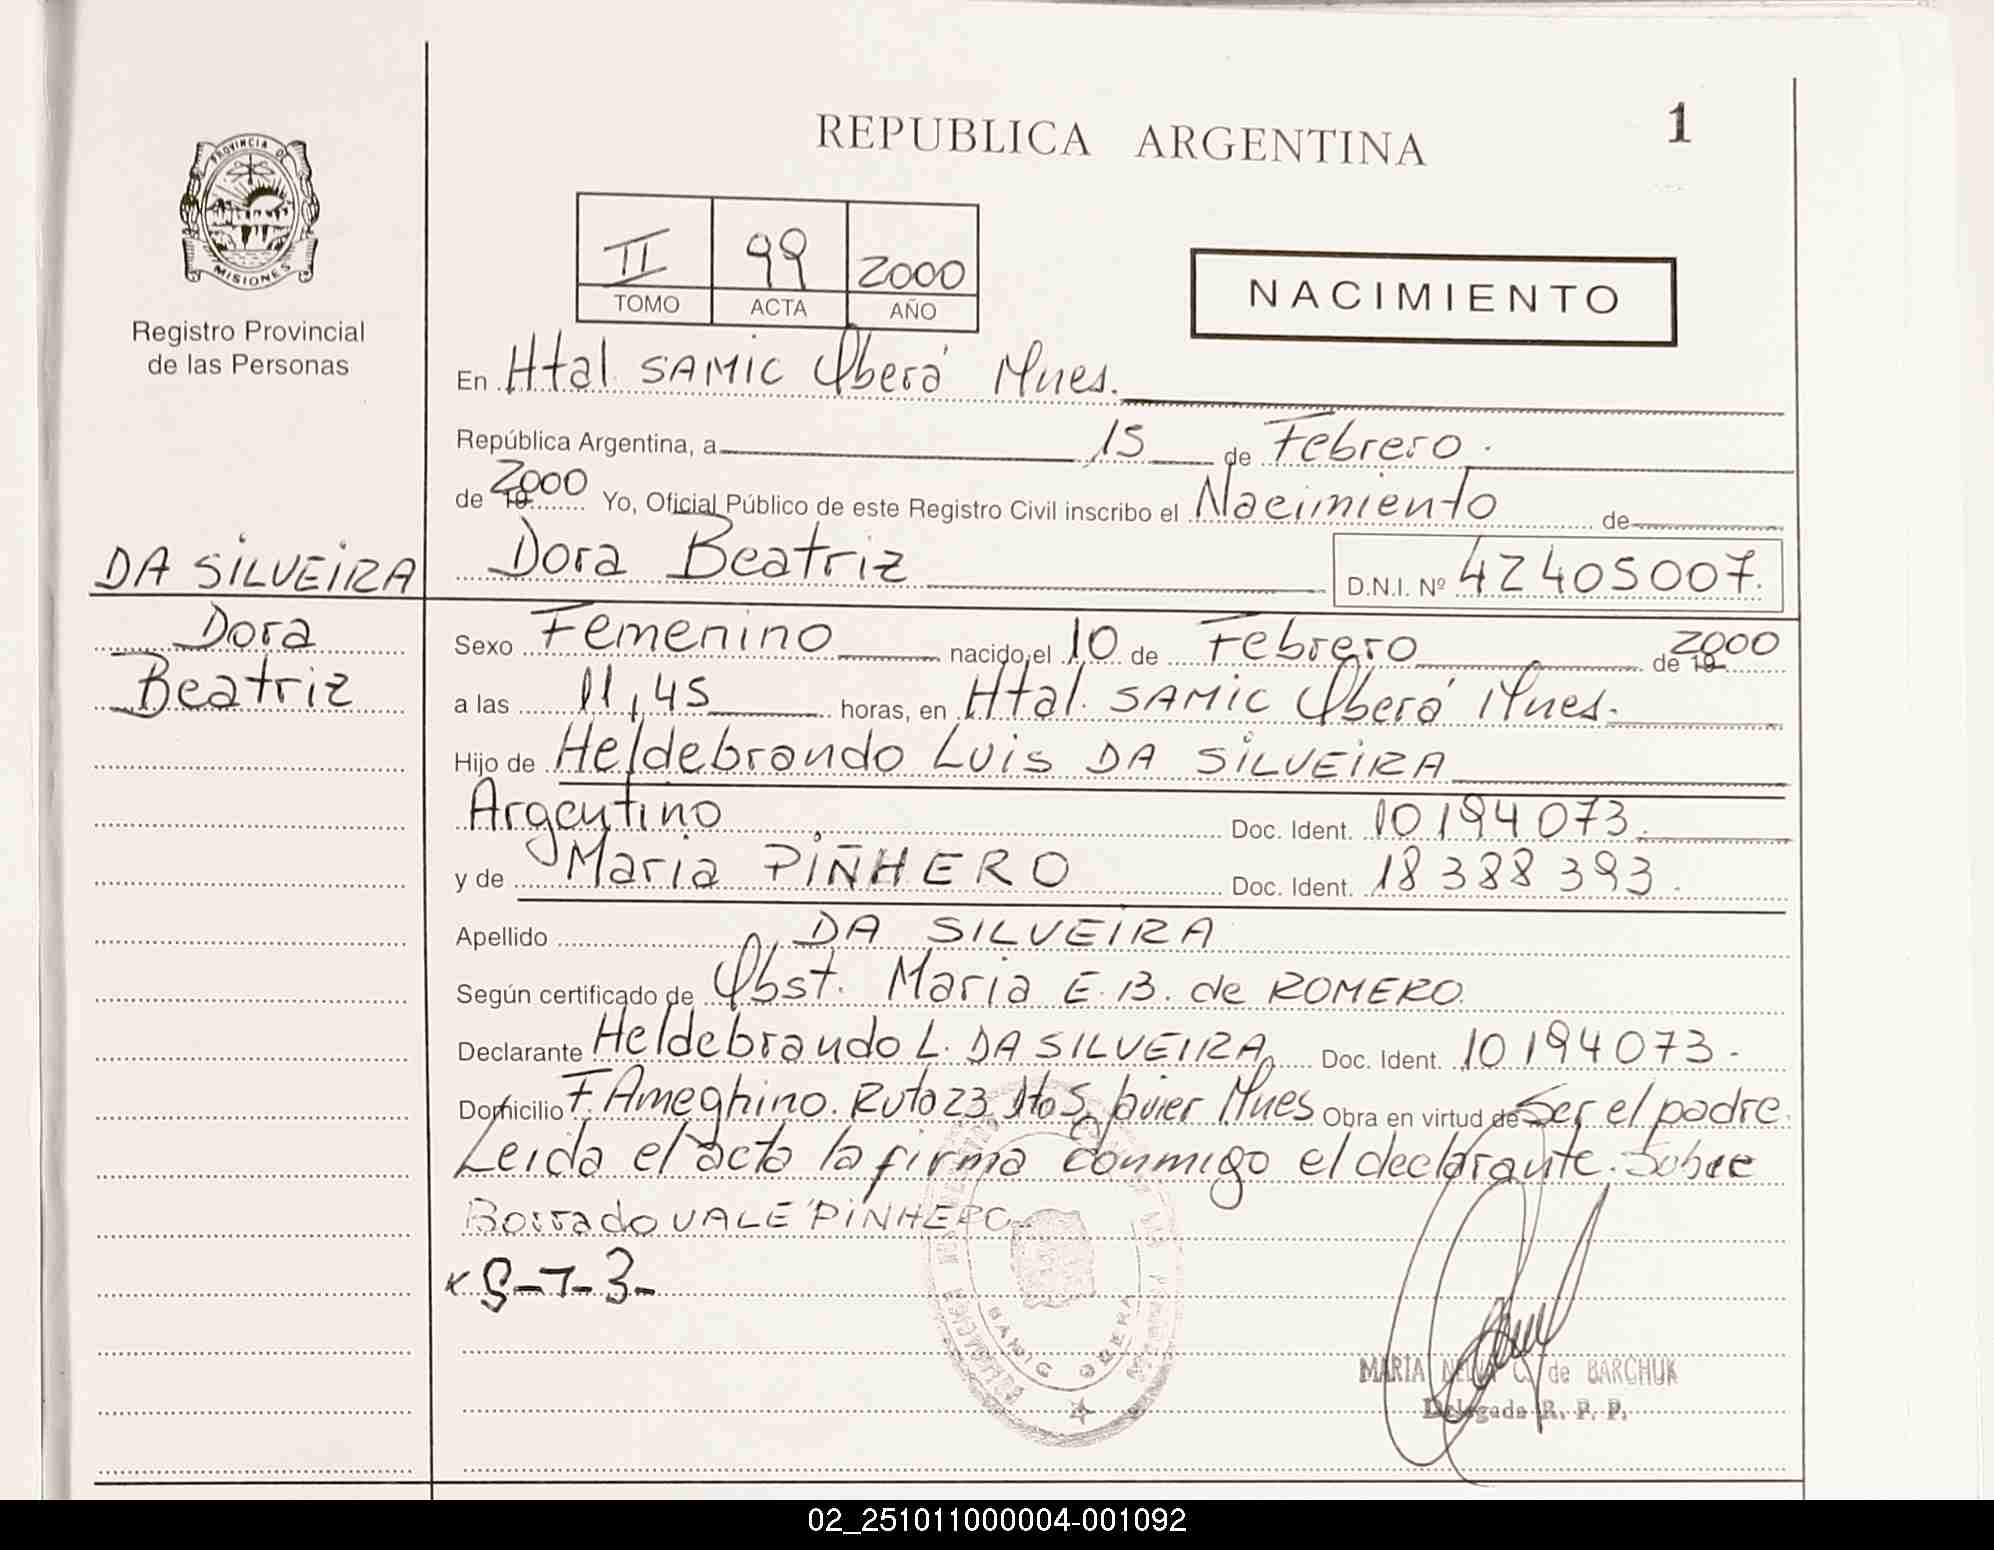 REPUBLICA ARGENTINA
1
PROVINCIA DE
MISIONES
Registro Provincial
de las Personas
II 99 2000
TOMO ACTA AÑO
NACIMIENTO
En Htal SAMIC Oberá Mnes.
República Argentina, a 15 de Febrero.
de 2000 Yo, Oficial Público de este Registro Civil inscribo el Nacimiento de
DA SILVEIRA Dora Beatriz D.N.I. Nº 42405007.
Dora
Beatriz
Sexo Femenino nacido el 10 de Febrero de 2000
a las 11,45 horas, en Htal. SAMIC Oberá Mnes.
Hijo de Heldebrando Luis DA SILVEIRA
Argentino Doc. Ident. 10194073.
y de Maria PIÑHERO Doc. Ident. 18388393.
Apellido DA SILVEIRA
Según certificado de Obst. Maria E. B. de ROMERO.
Declarante Heldebrando L. DA SILVEIRA Doc. Ident. 10194073.
Domicilio F. Ameghino. Ruta 23 Javier Mnes Obra en virtud de Ser el padre.
Leida el acta la firma conmigo el declarante. Sobre
Borrado VALE PIÑHERO
SAMIC OBERA
MARIA C. de BARCHUK
Delegada R. P. P.
02_251011000004-001092